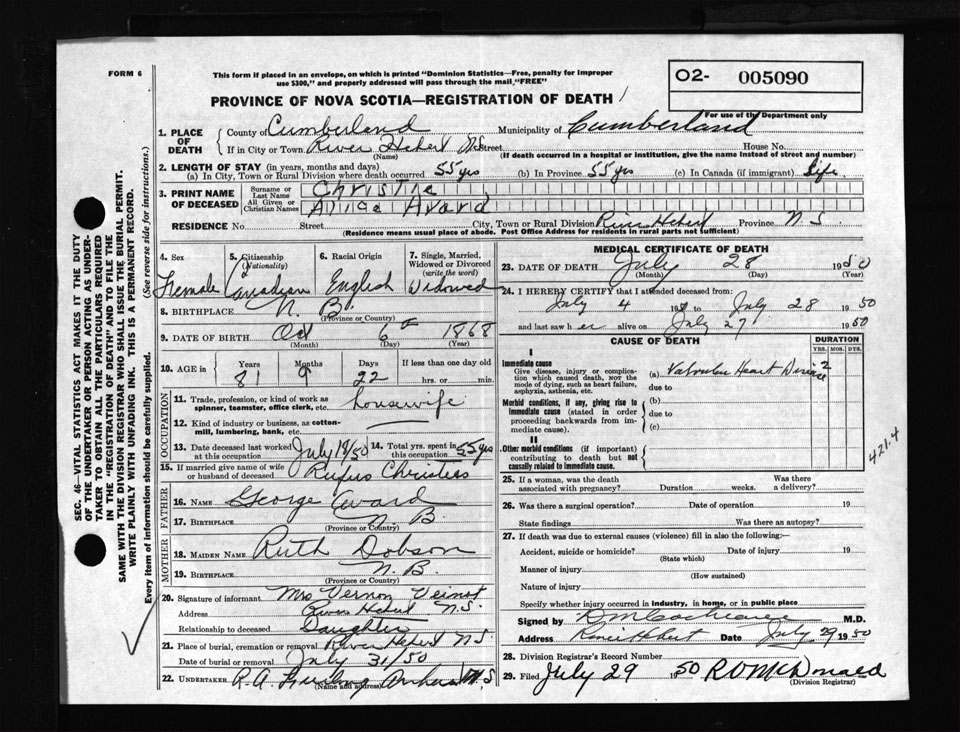 FORM 6
This form if placed in an envelope, on which is printed "Dominion Statistics—Free, penalty for improper
use $300," and properly addressed will pass through the mail, "FREE"
O2- 005090
For use of the Department only
PROVINCE OF NOVA SCOTIA—REGISTRATION OF DEATH
1. PLACE OF DEATH
County of Cumberland Municipality of Cumberland
If in City or Town River Hebert N.S. Street House No.
(Name) (If death occurred in a hospital or institution, give the name instead of street and number)
2. LENGTH OF STAY (in years, months and days)
(a) In City, Town or Rural Division where death occurred 55 yrs (b) In Province 55 yrs (c) In Canada (if immigrant) Life.
3. PRINT NAME OF DECEASED
Surname or Last Name Christie
All Given or Christian Names Avard
RESIDENCE No. Street City, Town or Rural Division River Hebert Province N.S
(Residence means usual place of abode. Post Office Address for residents in rural parts not sufficient)
4. Sex Female
5. Citizenship (Nationality) Canadian
6. Racial Origin English
7. Single, Married, Widowed or Divorced (write the word) Widowed
8. BIRTHPLACE N. B.
(Province or Country)
9. DATE OF BIRTH Oct 6th 1868
(Month) (Day) (Year)
10. AGE in Years Months Days If less than one day old
8 9 22 hrs. or min.
OCCUPATION
11. Trade, profession, or kind of work as spinner, teamster, office clerk, etc. housewife
12. Kind of industry or business, as cotton-mill, lumbering, bank, etc.
13. Date deceased last worked at this occupation July 18/50 14. Total yrs. spent in this occupation 55 yrs
15. If married give name of wife or husband of deceased Rufus Christie
FATHER
16. NAME George Avard
17. BIRTHPLACE N. B.
(Province or Country)
MOTHER
18. MAIDEN NAME Ruth Dobson
19. BIRTHPLACE N. B.
(Province or Country)
20. Signature of informant Mrs Vernon Veinot
Address River Hebert N.S.
Relationship to deceased Daughter
21. Place of burial, cremation or removal River Hebert N.S.
Date of burial or removal July 31/50
22. UNDERTAKER R. A. Amherst N.S
(Name and address)
MEDICAL CERTIFICATE OF DEATH
23. DATE OF DEATH July 28 1950
(Month) (Day) (Year)
24. I HEREBY CERTIFY that I attended deceased from:
July 4 19 to July 28 1950
and last saw her alive on July 27 1950
CAUSE OF DEATH
DURATION
YRS. MOS. DYS.
I
Immediate cause
Give disease, injury or complication which caused death, NOT the mode of dying, such as heart failure, asphyxia, asthenia, etc.
(a) Valvular Heart Disease 2
due to
Morbid conditions, if any, giving rise to immediate cause (stated in order proceeding backwards from immediate cause).
(b)
due to
(c)
II
Other morbid conditions (if important) contributing to death but not causally related to immediate cause.
421.4
25. If a woman, was the death associated with pregnancy? Duration weeks. Was there a delivery?
26. Was there a surgical operation? Date of operation 19
State findings Was there an autopsy?
27. If death was due to external causes (violence) fill in also the following:—
Accident, suicide or homicide? Date of injury 19
(State which)
Manner of injury
(How sustained)
Nature of injury
Specify whether injury occurred in industry, in home, or in public place
Signed by D M Cochrane M.D.
Address River Hebert Date July 29 1950
28. Division Registrar's Record Number
29. Filed July 29 1950 R D McDonald
(Division Registrar)
SEC. 46—VITAL STATISTICS ACT MAKES IT THE DUTY
OF THE UNDERTAKER OR PERSON ACTING AS UNDER-
TAKER TO OBTAIN ALL THE PARTICULARS REQUIRED
IN THE "REGISTRATION OF DEATH" AND TO FILE THE
SAME WITH THE DIVISION REGISTRAR WHO SHALL ISSUE THE BURIAL PERMIT.
WRITE PLAINLY WITH UNFADING INK. THIS IS A PERMANENT RECORD.
Every item of information should be carefully supplied. (See reverse side for instructions.)